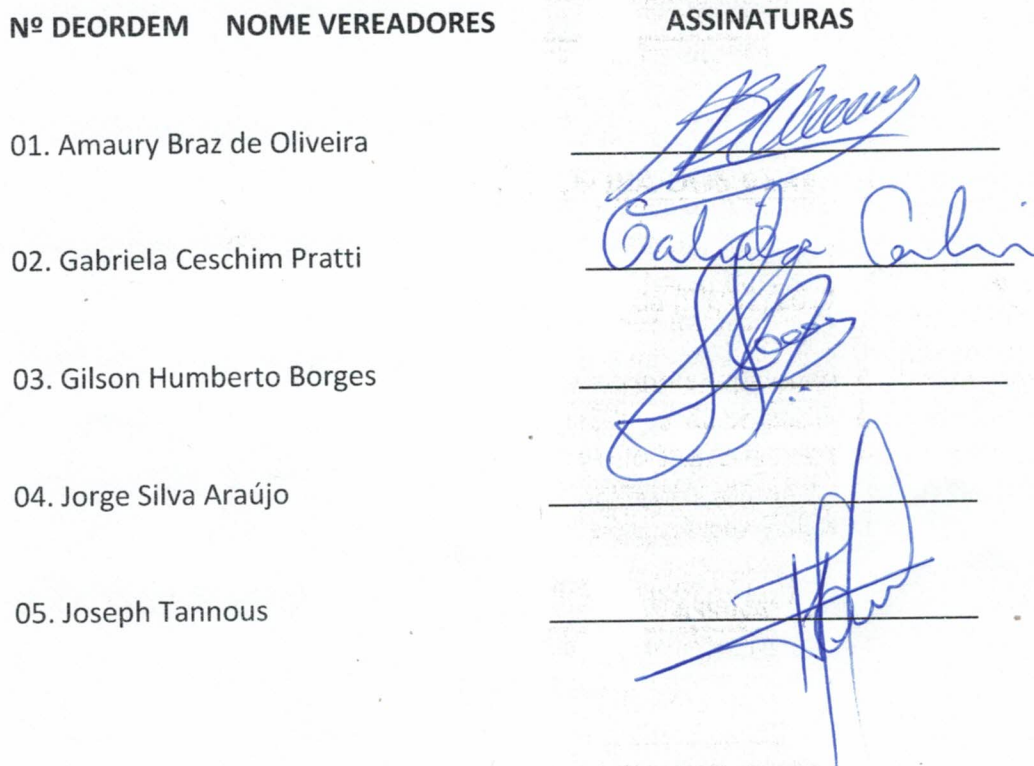 Nº DEORDEM NOME VEREADORES ASSINATURAS
01. Amaury Braz de Oliveira
02. Gabriela Ceschim Pratti
Gabriela
03. Gilson Humberto Borges
04. Jorge Silva Araújo
05. Joseph Tannous